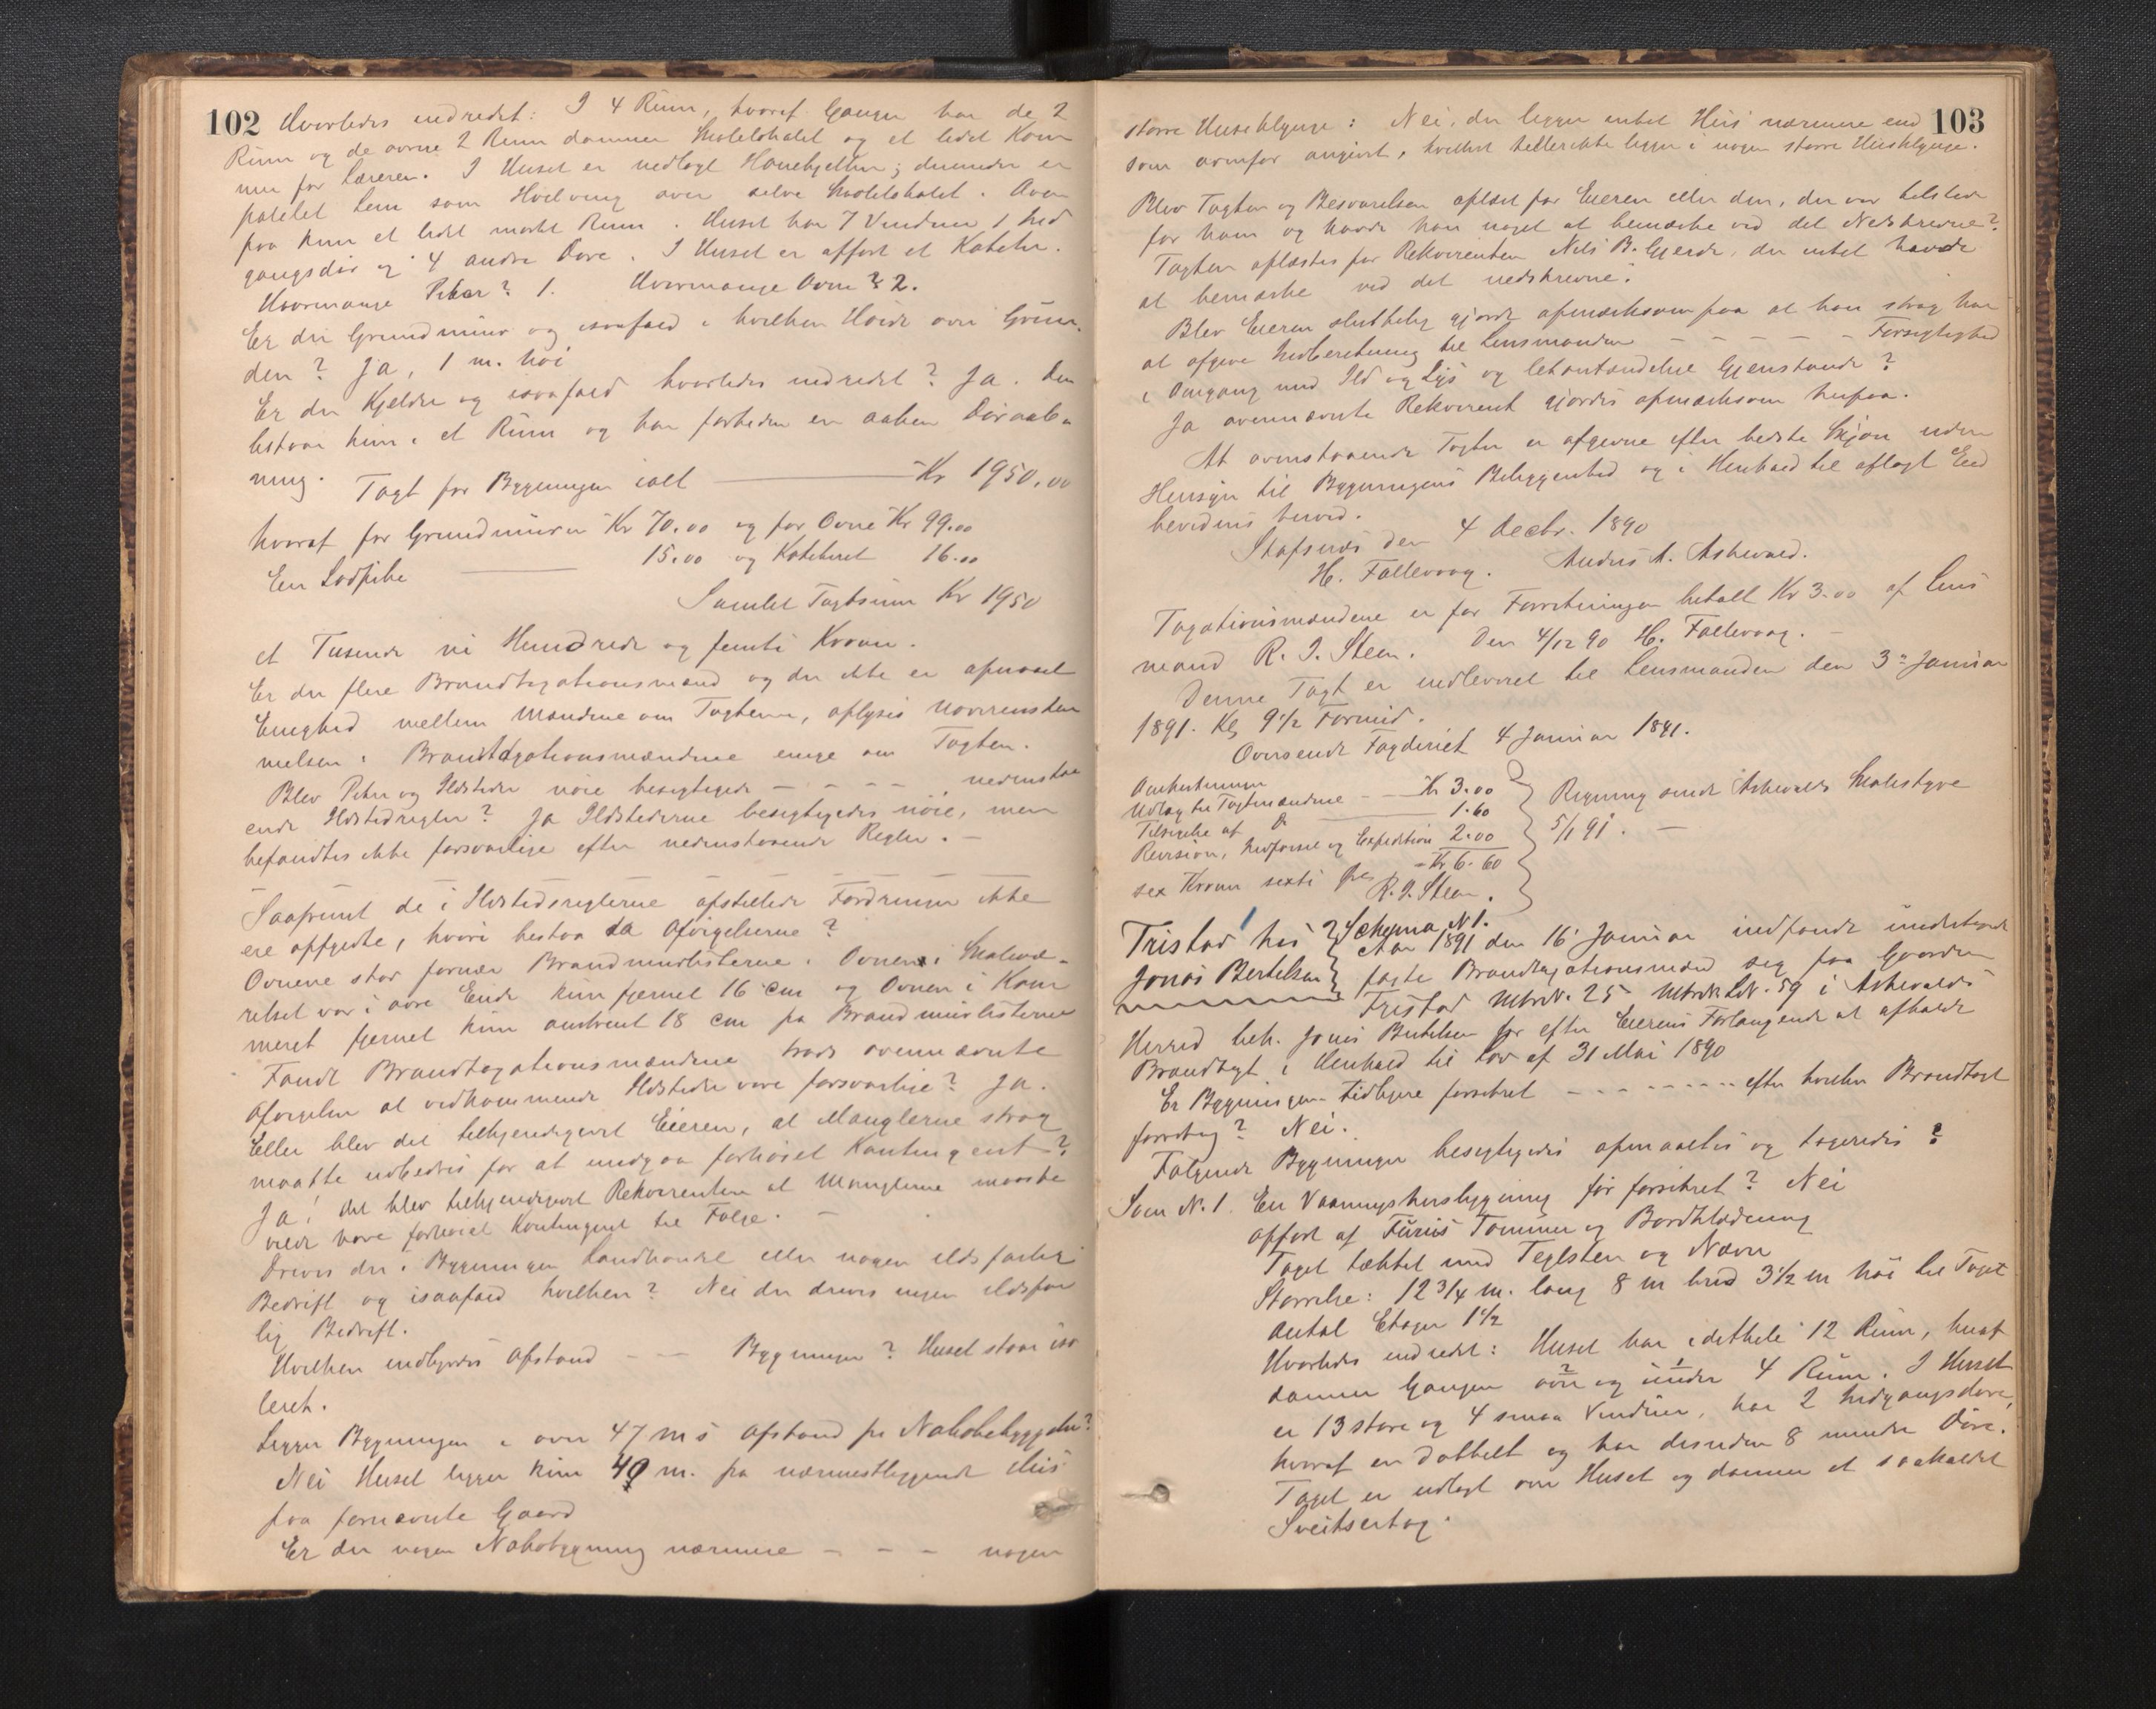 102
Hvorledes indredet: I 4 Rum, hvoraf Gangen har de 2
Rum og de øvrige 2 Rum danner Skolelokalet og et lidet Kam
mer for Læreren. I Huset er nedlagt Hanebjelker; derunder er
panelet Lem som Hvelving over selve Skolelokalet. Oven
paa kun et lidet mørkt Rum. Huset har 7 Vinduer 1 Ind
gangsdør og 4 andre Døre. I Huset er opført et Katheter.
Hvormange Piber? 1. Hvormange Ovne? 2.
Er der Grundmur og isaafald i hvilken Høide over Grun-
den? Ja, 1 m. høi
Er der Kjelder og isaafald hvorledes indredet? Ja. Den
bestaar kun i et Rum og har forneden en aaben Døraab-
ning.
Taxt for Bygningen ialt — Kr 1950.00
hvoraf for Grundmuren Kr 70.00 og for Ovne Kr 99.00
En Lodpibe — 15.00 og Katheteret 16.00
Samlet Taxtsum Kr 1950
et Tusende ni Hundrede og femti Kroner.
Er der flere Brandtaxationsmænd og der ikke er opnaaet
Enighed mellem Mændene om Taxterne, oplyses Uoverensstem
melsen: Brandtaxationsmændene enige om Taxten.
Blev Piber og Ildsteder nøie besigtigede - - - - nedenstaa
ende Ildstedregler? Ja Ildstederne besigtigedes nøie, men
befandtes ikke forsvarlige efter nedenstaaende Regler. -
Saafremt de i Ildstedsreglerne opstillede Fordringer ikke
ere opfyldte, hvori bestaa da Afvigelserne?
Ovnene staar fornær Brandmurlisterne. Ovnen i Skolevæ-
relset var i øvre Ende kun fjernet 16 cm og Ovnen i Kam
meret fjernet kun omtrent 18 cm fra Brandmurlisterne
Fandt Brandtaxationsmændene trods ovennævnte
Afvigelser at vedkommende Ildsteder vare forsvarlige? Ja.
Eller blev det tilkjendegivet Eieren, at Manglerne strax
maatte udbedres for at undgaa forhøiet Kontingent?
Ja! det blev tilkjendegivet Rekvirenten at Manglerne maaske
vilde have forhøiet Kontingent til Følge. -
Drives der i Bygningen Landhandel eller nogen ildsfarlig
Bedrift og isaafald hvilken? Nei der drives ingen ildsfar
lig Bedrift.
Hvilken indbyrdes Afstand - - Bygninger? Huset staar iso
leret.
Ligger Bygningen i over 47 m's Afstand fra Nabobebyggelse?
Nei Huset ligger kun 40 m. fra nærmestliggende Hus
paa fornævnte Gaard
Er der nogen Nabobygning nærmere - - - nogen
103
større Huseklynge: Nei, der ligger intet Hus nærmere end
som ovenfor angivet, hvilket hellerikke ligger i nogen større Husklynge.
Blev Taxten og Besvarelsen oplæst for Eieren eller den, der var tilstede
for ham og havde han noget at bemærke ved det Nedskrevne?
Taxten oplæstes for Rekvirenten Nils B. Gjerde, der intet havde
at bemærke ved det nedskrevne.
Blev Eieren sluttelig gjort opmærksom paa at han strax har
at afgive Indberetning til Lensmanden - - - - - Forsigtighed
i Omgang med Ild og Lys og letantændelige Gjenstande?
Ja ovennævnte Rekvirent gjordes opmærksom herpaa.
At ovenstaaende Taxter er afgivne efter bedste Skjøn uden
Hensyn til Bygningens Beliggenhed og i Henhold til aflagt Eed
bevidnes herved.
Stafsnæs den 4 Decbr. 1890
H. Fallevaag. Anders A. Askevold.
Taxationsmændene er for Forretningen betalt Kr 3.00 af Lens
mand R. I. Steen. Den 4/12 90 H. Fallevaag. -
Denne Taxt er indleveret til Lensmanden den 3die Januar
1891. Kl 9 1/2 Formid.
Oversendt Fogderiet 4 Januar 1891.
Omkostninger
Udlæg til Taxtmændene - - Kr 3.00
Tilsigelse af Do — 1.60
Revision, Indførsel og Expedition 2.00
- Kr 6.60
sex Kroner sexti Øre
R. I. Steen.
Regning sendt Askevolds Skolestyre
5/1 91. -
Tristad hos
Jonas Bertelsen
Schema N 1.
Aar 1891 den 16 Januar indfandt undertegnede
faste Brandtaxationsmænd sig paa Gaarden
Tristad Mtr.N. 25 Mtrk. L.N. 59 i Askevolds
Herred beh. Jonas Bertelsen for efter Eierens Forlangende at afholde
Brandtaxt i Henhold til Lov af 31 Mai 1890
Er Bygningen tidligere forsikret - - - - - - - - efter hvilken Brandtaxt
forretng? Nei.
Følgende Bygninger besigtigedes opmaaltes og taxeredes?
Som N. 1. En Vaaningshusbygning før forsikret? Nei
opført af Furus Tømmer og Bordklædning
Taget tækket med Teglsten og Næver
Størrelse: 12 3/4 m. lang 8 m bred 3 1/2 m høi til Taget
Antal Etager 1 1/2
Hvorledes indredet: Huset har i dethele 12 Rum, hvoraf
danner Gangen over og under 4 Rum. I Huset
er 13 store og 4 smaa Vinduer, har 2 Indgangsdøre,
hvoraf en dobbelt og har desuden 8 mindre Døre.
Taget er udlagt over Huset og danner et saakaldet
Sveitsertag.